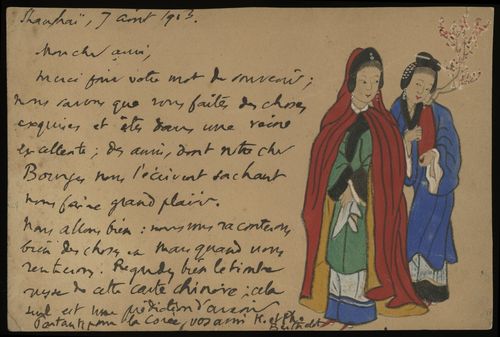 Shanghaï, 7 août 190
Mon cher ami,
merci pour votre mot de souvenir ;
nous savons que vous faites des choses
exquises et êtes dans une veine
excellente ; des amis, dont notre cher
Bourges nous l'écrivent sachant
nous faire grand plaisir.
Nous allons bien : nous vous raconterons
bien des choses mais quand nous
rentrerons. Regardez bien le timbre
russe de cette carte chinoise ; cela
seul est une prédiction d'avenir
Partant pour la Corée, vos amis et Phe
Berthelot